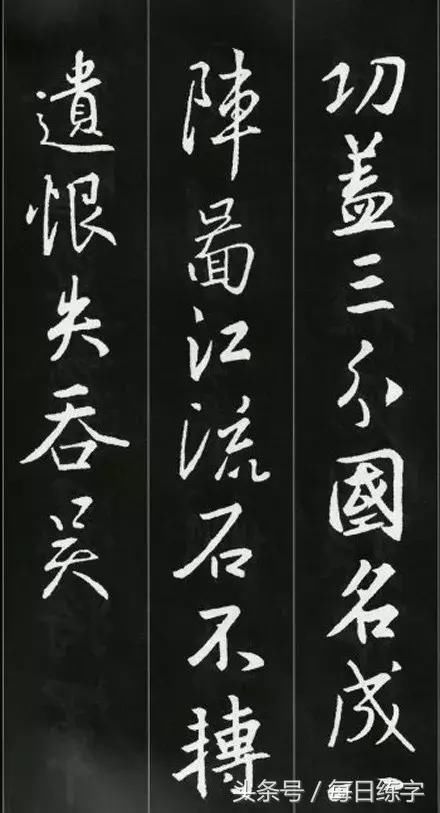 功盖三分國名成
陣圖江流石不轉
遺恨失吞吳
头条号 / 每日练字